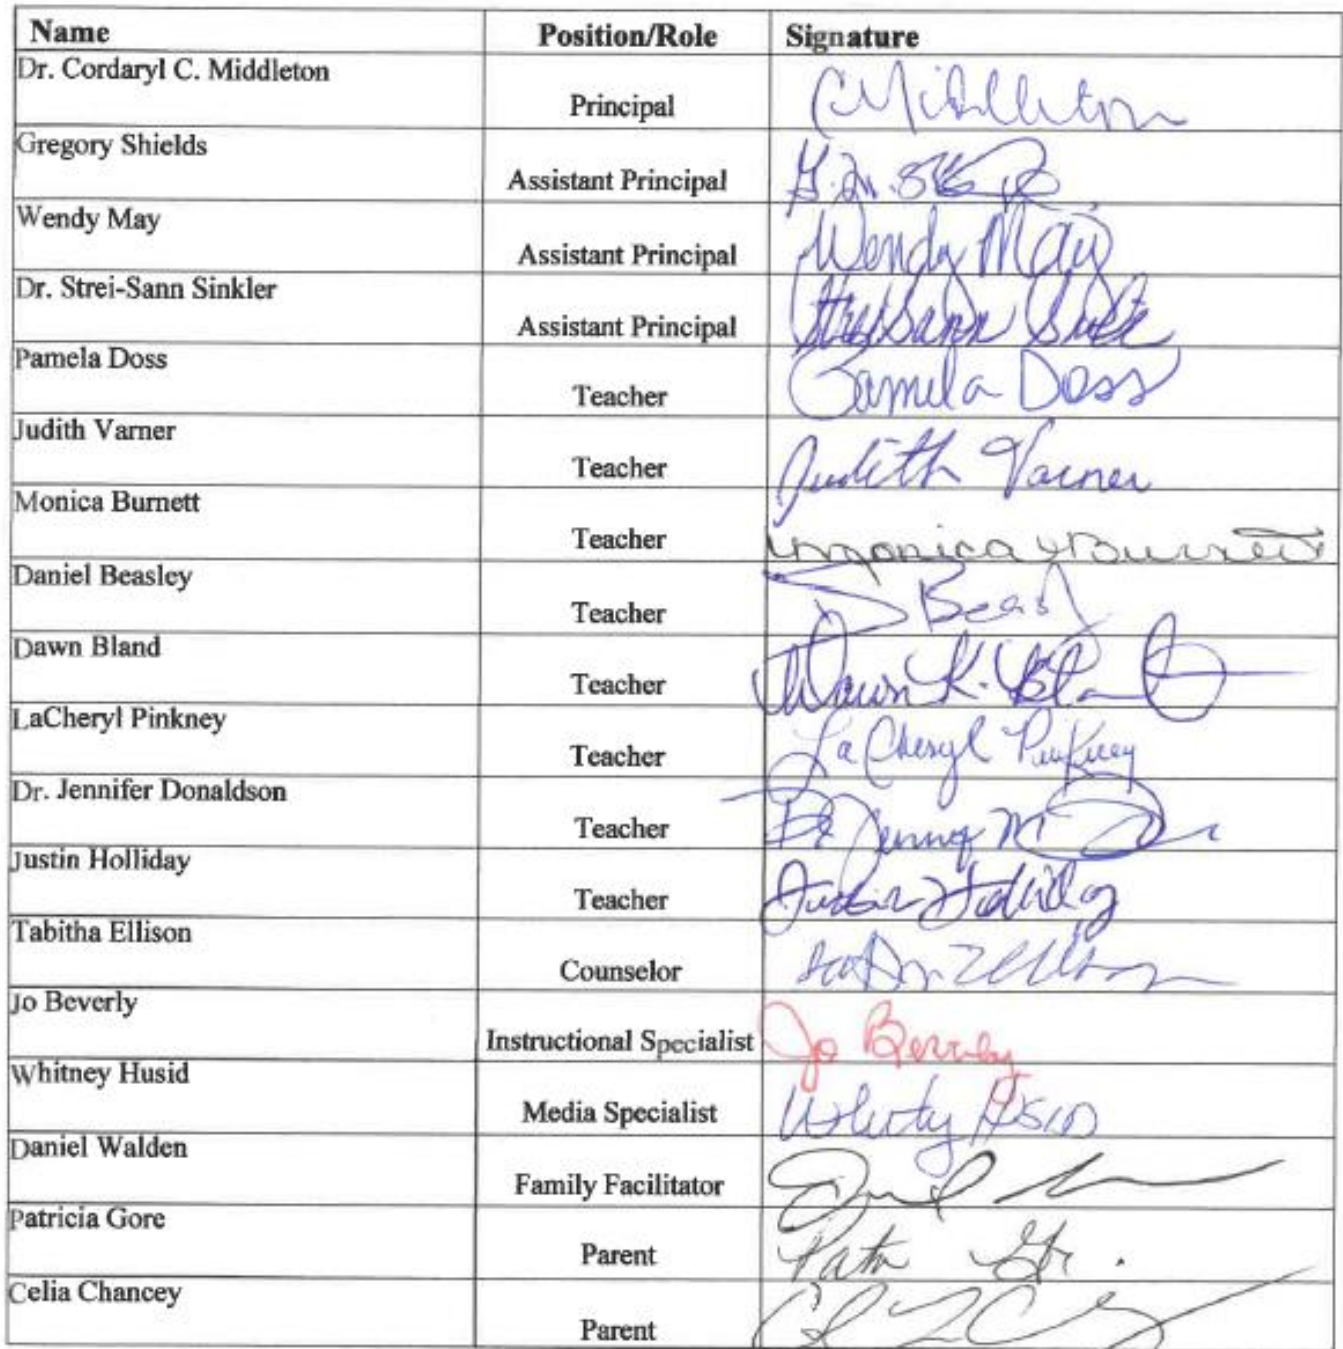 Name Position/Role Signature
Dr. Cordaryl C. Middleton
Principal CMiddleton
Gregory Shields
Assistant Principal G.M.
Wendy May
Assistant Principal Wendy May
Dr. Strei-Sann Sinkler
Assistant Principal
Pamela Doss
Teacher Pamela Doss
Judith Varner
Teacher Judith Varner
Monica Burnett
Teacher Monica Burnett
Daniel Beasley
Teacher
Dawn Bland
Teacher Dawn K. Bland
LaCheryl Pinkney
Teacher LaCheryl Pinkney
Dr. Jennifer Donaldson
Teacher Dr Jennifer M
Justin Holliday
Teacher Justin Holliday
Tabitha Ellison
Counselor
Jo Beverly
Instructional Specialist Jo Beverly
Whitney Husid
Media Specialist Whitney Husid
Daniel Walden
Family Facilitator
Patricia Gore
Parent
Celia Chancey
Parent